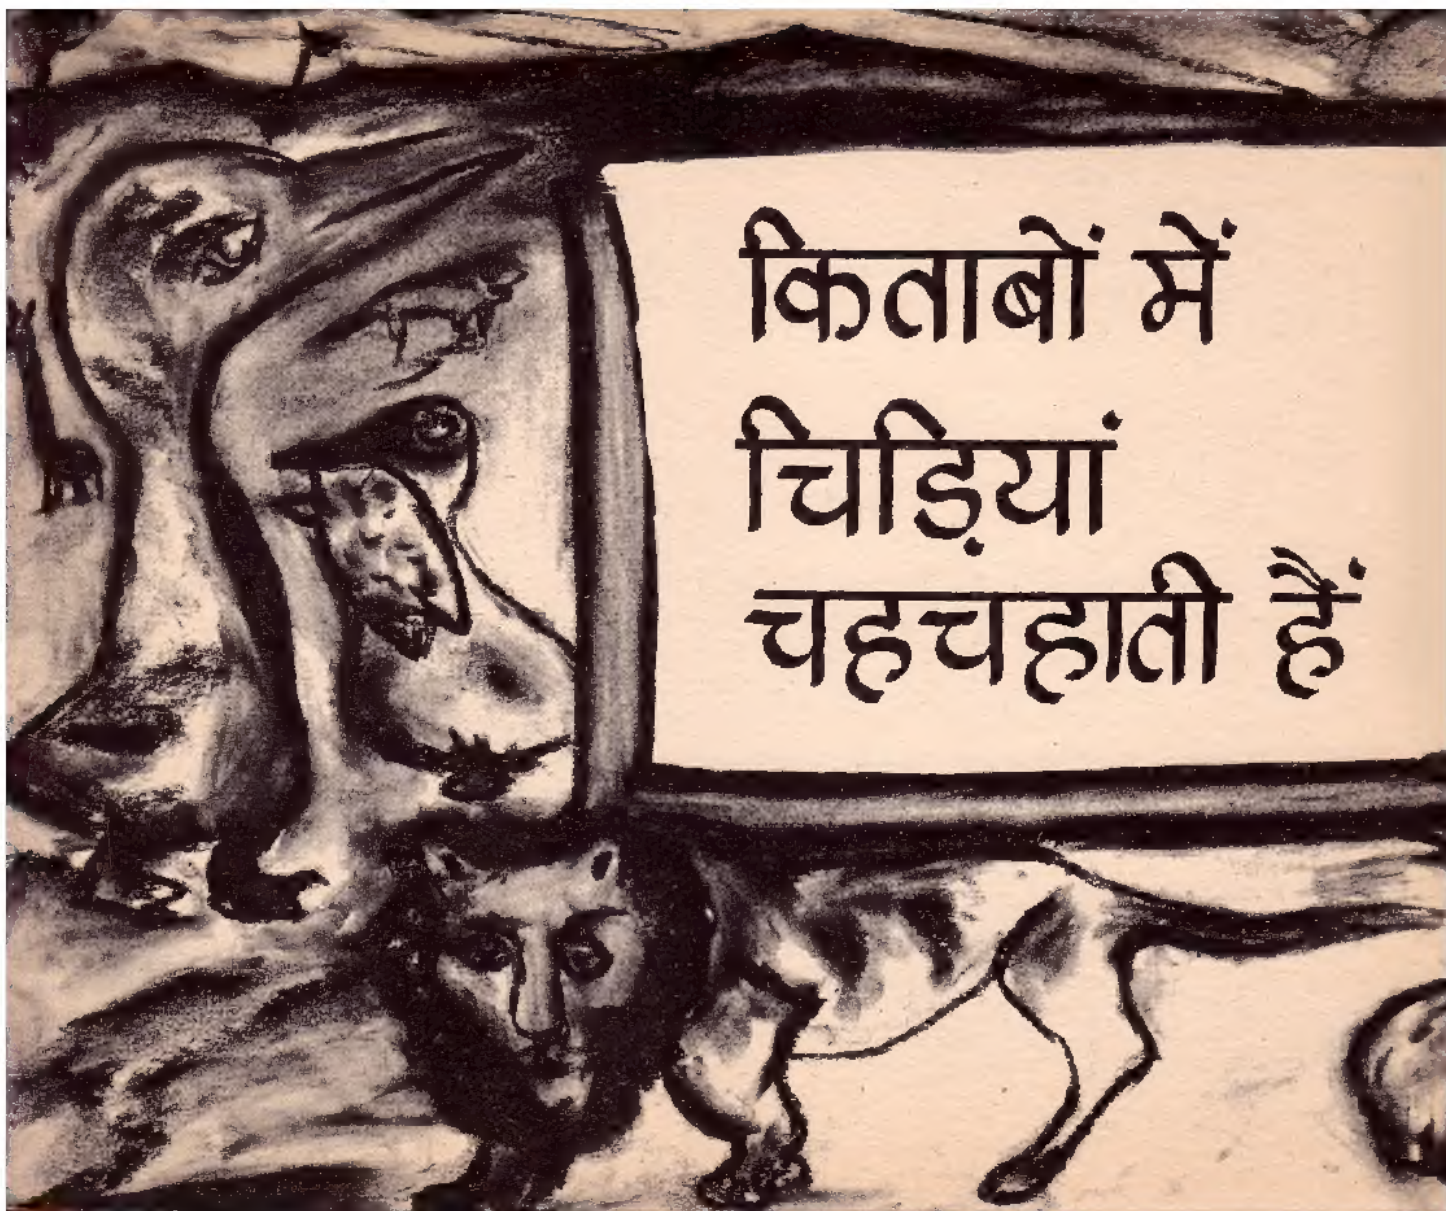 किताबों में
चिड़ियां
चहचहाती हैं